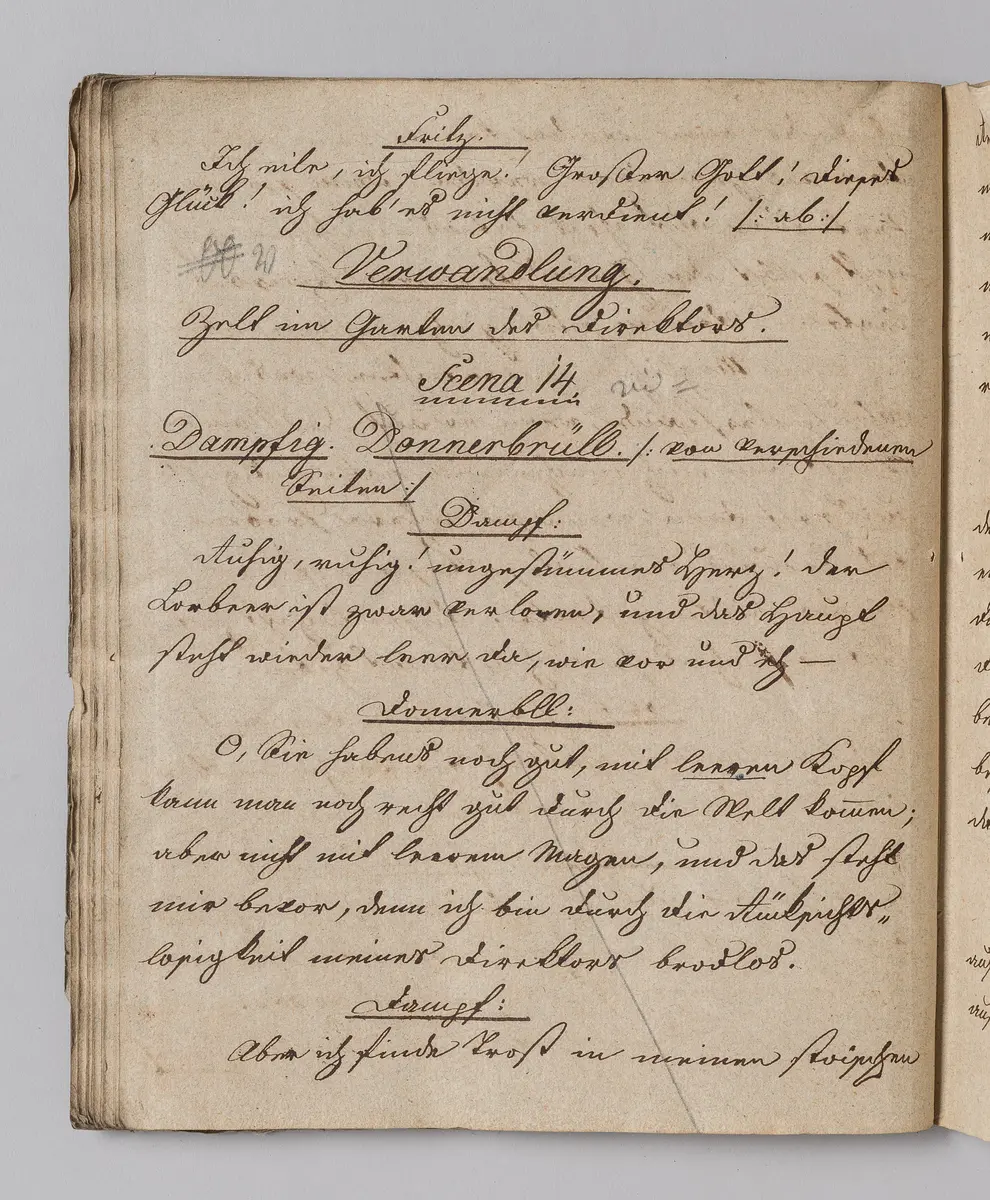 Fritz.
Ich eile, ich fliege! Großer Gott! dieses
Glück! ich hab' es nicht verdient! /: ab :/
20
Verwandlung.
Zelt im Garten des Direktors.
Scena 14.
Dampfig. Donnerbrüll. /: von verschiedenen
Seiten :/
Dampf:
Ruhig, ruhig! ungestümmes Herz! der
Lorbeer ist zwar verloren, und das Haupt
steht wieder leer da, wie vor und eh —
Donnerbll:
O, Sie habens noch gut, mit leeren Kopf
kann man noch recht gut durch die Welt kom̄en;
aber nicht mit leerem Magen, und das steht
mir bevor, denn ich bin durch die Rüksichts„
losigkeit meines Direktors brodlos.
Dampf:
Aber ich finde Trost in meinen stoischen